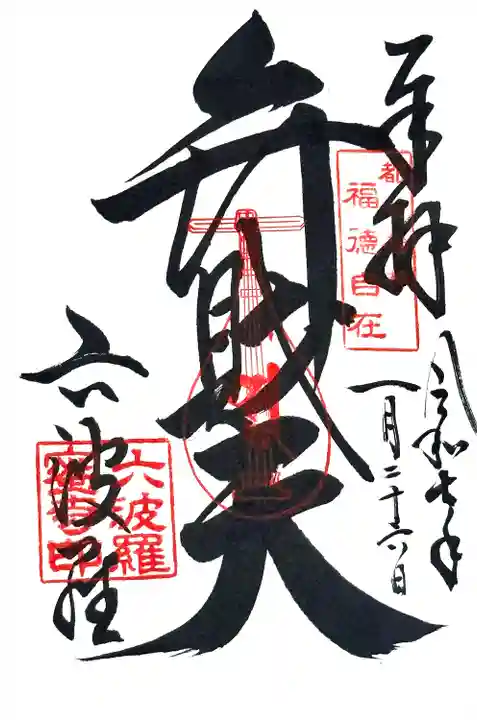 奉拝
令和七年
一月二十六日
都
福徳自在
弁財天
六波羅
六波羅
密寺印